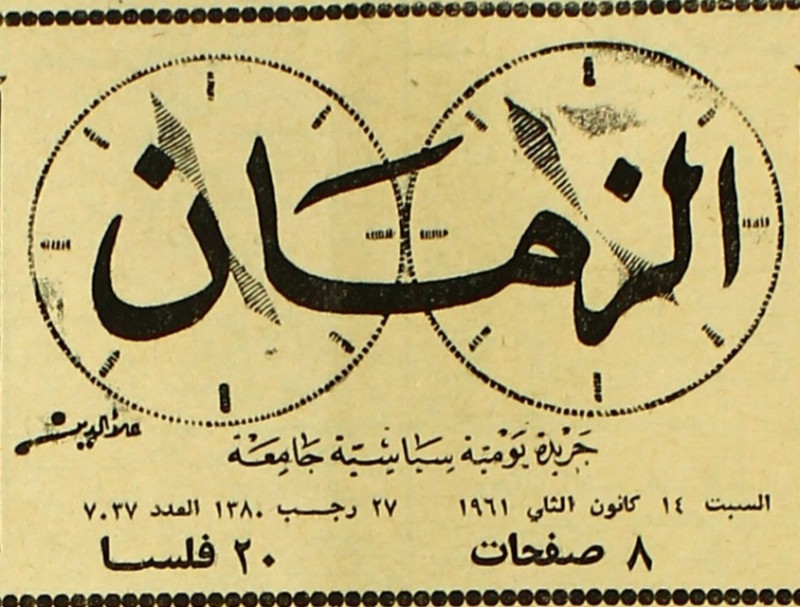 الزمان
علاء الدين
جريدة يومية سياسية جامعة
السبت ١٤ كانون الثاني ١٩٦١ ٢٧ رجب ١٣٨٠ العدد ٧٠٣٧
٨ صفحات ٢٠ فلسا